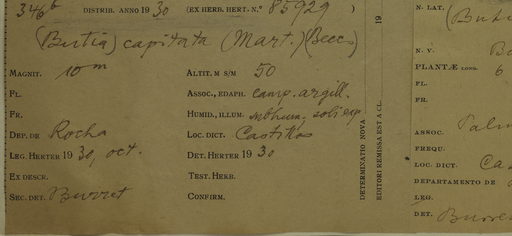 346b DISTRIB. ANNO 1930 (EX HERB. HERT. N.º 85929 )
(Butia) capitata (Mart.) (Becc.)
MAGNIT. 10 m ALTIT. M S/M 50
FL. ASSOC., EDAPH. camp. argill.
FR. HUMID., ILLUM. subhum, soli exp.
DEP. DE Rocha LOC. DICT. Castillos
LEG. HERTER 1930, oct. DET. HERTER 1930
EX DESCR. TEST. HERB.
SEC. DET. Burret CONFIRM.
DETERMINATIO NOVA
EDITORI REMISSA EST A CL.
19
N. LAT.
(Buti
N. V.
PLANTÆ LONG. 6
FL.
FR.
ASSOC. Palm
FREQU.
LOC. DICT. Cas
DEPARTAMENTO DE
LEG.
DET. Burre